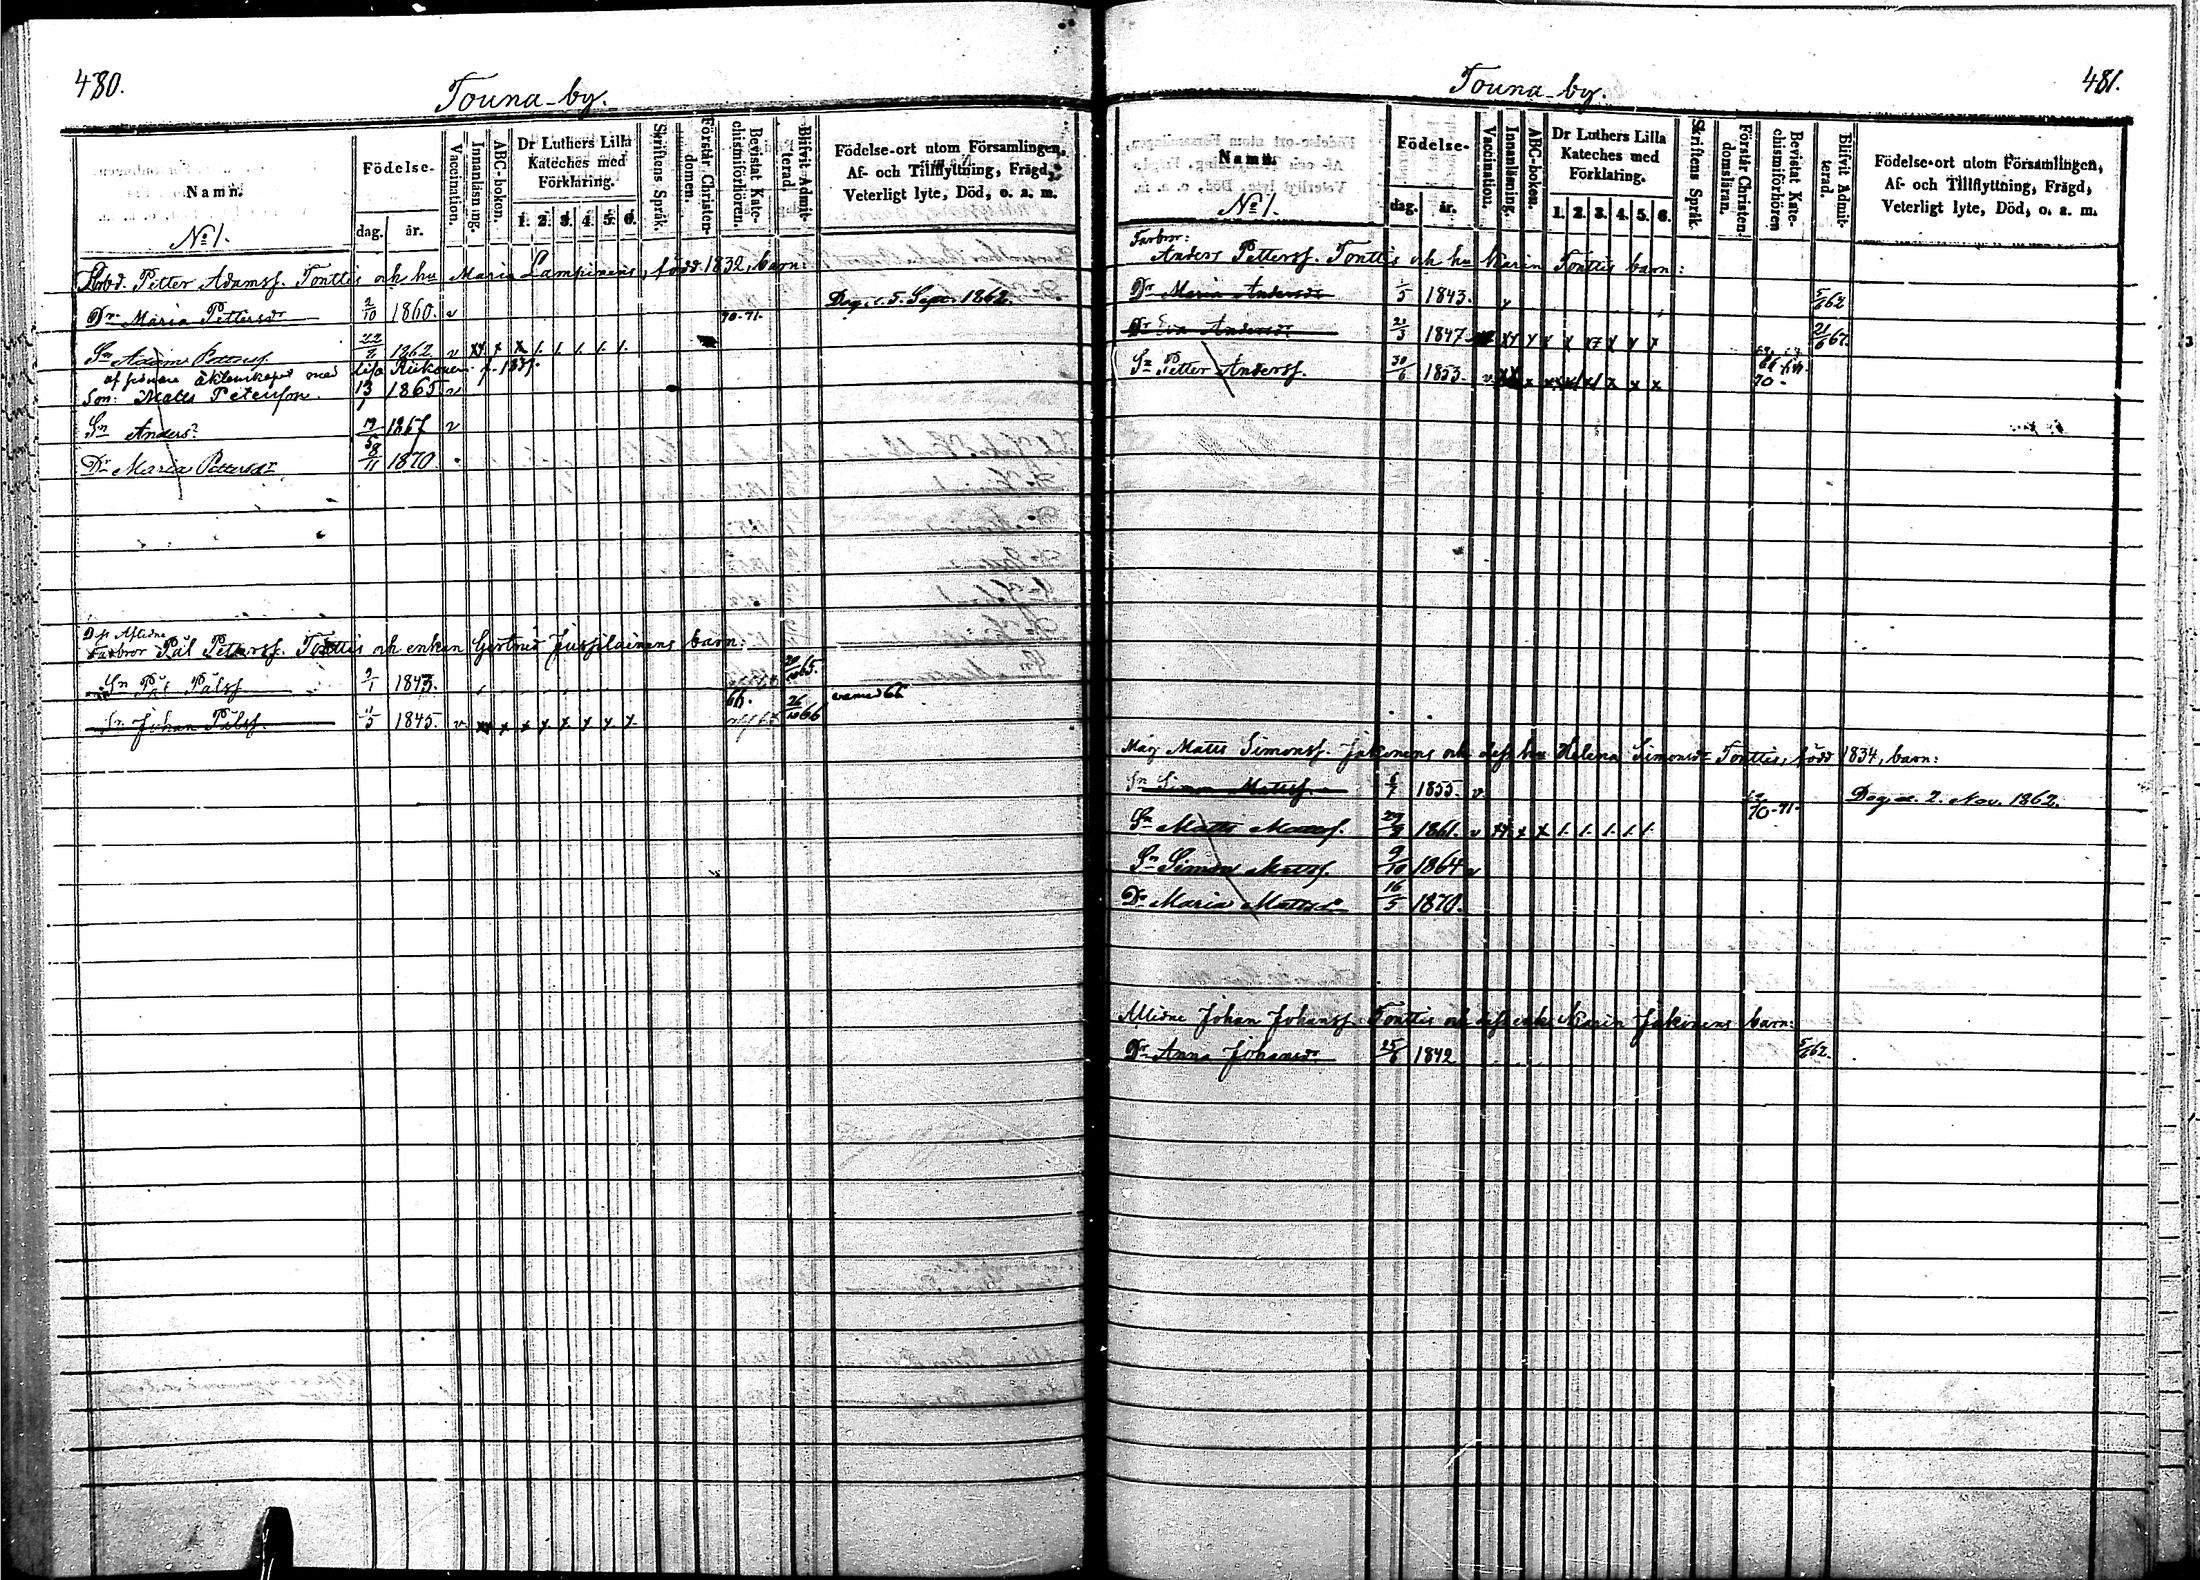 480.
Touna by.
Namn.
No 1.
Födelse-
dag.
år.
Vaccination.
Innanläsning.
ABC-boken.
Dr Luthers Lilla
Kateches med
Förklaring.
1. 2. 3. 4. 5. 6.
Skriftens Språk.
Förstår Christen-
domen.
Bevistat Kate-
chismiförhören.
Blifvit Admit-
terad.
Födelse-ort utom Församlingen,
Af- och Tillflyttning, Frägd,
Veterligt lyte, Död, o. a. m.
Petter Adamss. Tonttis och hu Maria Lampinens, född 1832, barn:
Dr Maria Pettersdr 2/10 1860. v 70-71. Dog d. 5. Sept. 1862.
Sn Adam Petterss. 1862 v
af senare äktenskapet med Riikonen f. 1839.
Son: Matts Peterson. 13/1 1865 v
Sn Anders 1867 v
Dr Maria Pettersdr 1870
Aflidne
Farbror Pål Petterss. Tonttis och enkan Gertrud Jussilainens barn:
Sn Pål Pålss 2/1 1843. 65.
Sn Johan Pålss. 1845. v 66. 26/10 66
481.
Touna by.
Namn.
No 1.
Födelse-
dag.
år.
Vaccination.
Innanläsning.
ABC-boken.
Dr Luthers Lilla
Kateches med
Förklaring.
1. 2. 3. 4. 5. 6.
Skriftens Språk.
Förstår Christen-
domsläran.
Bevistat Kate-
chismiförhören
Blifvit Admit-
terad.
Födelse-ort utom Församlingen,
Af- och Tillflyttning, Frägd,
Veterligt lyte, Död, o. a. m.
Farbror:
Anders Petterss. Tonttis och hu Karin Tonttis barn:
Dr Maria Andersdr 1/5 1843. 62
Dr Eva Andersdr 21/3 1847
Sn Petter Anderss. 30/6 1853. 70-
Måg Matts Simonss. Jakonens och dess hu Helena Simonsdr Tonttis, född 1834, barn:
Sn Simon Mattss. 1855. v Dog d. 2. Nov. 1862.
Sn Matts Mattss. 1861. v 70-71.
Sn Simon Mattss. 9/10 1864 v
Dr Maria Mattsdr 16/5 1870.
Aflidne Johan Johanss. Tonttis och dess enk. Karin Jakonens barn:
Dr Anna Johansdr 25/6 1842 62.